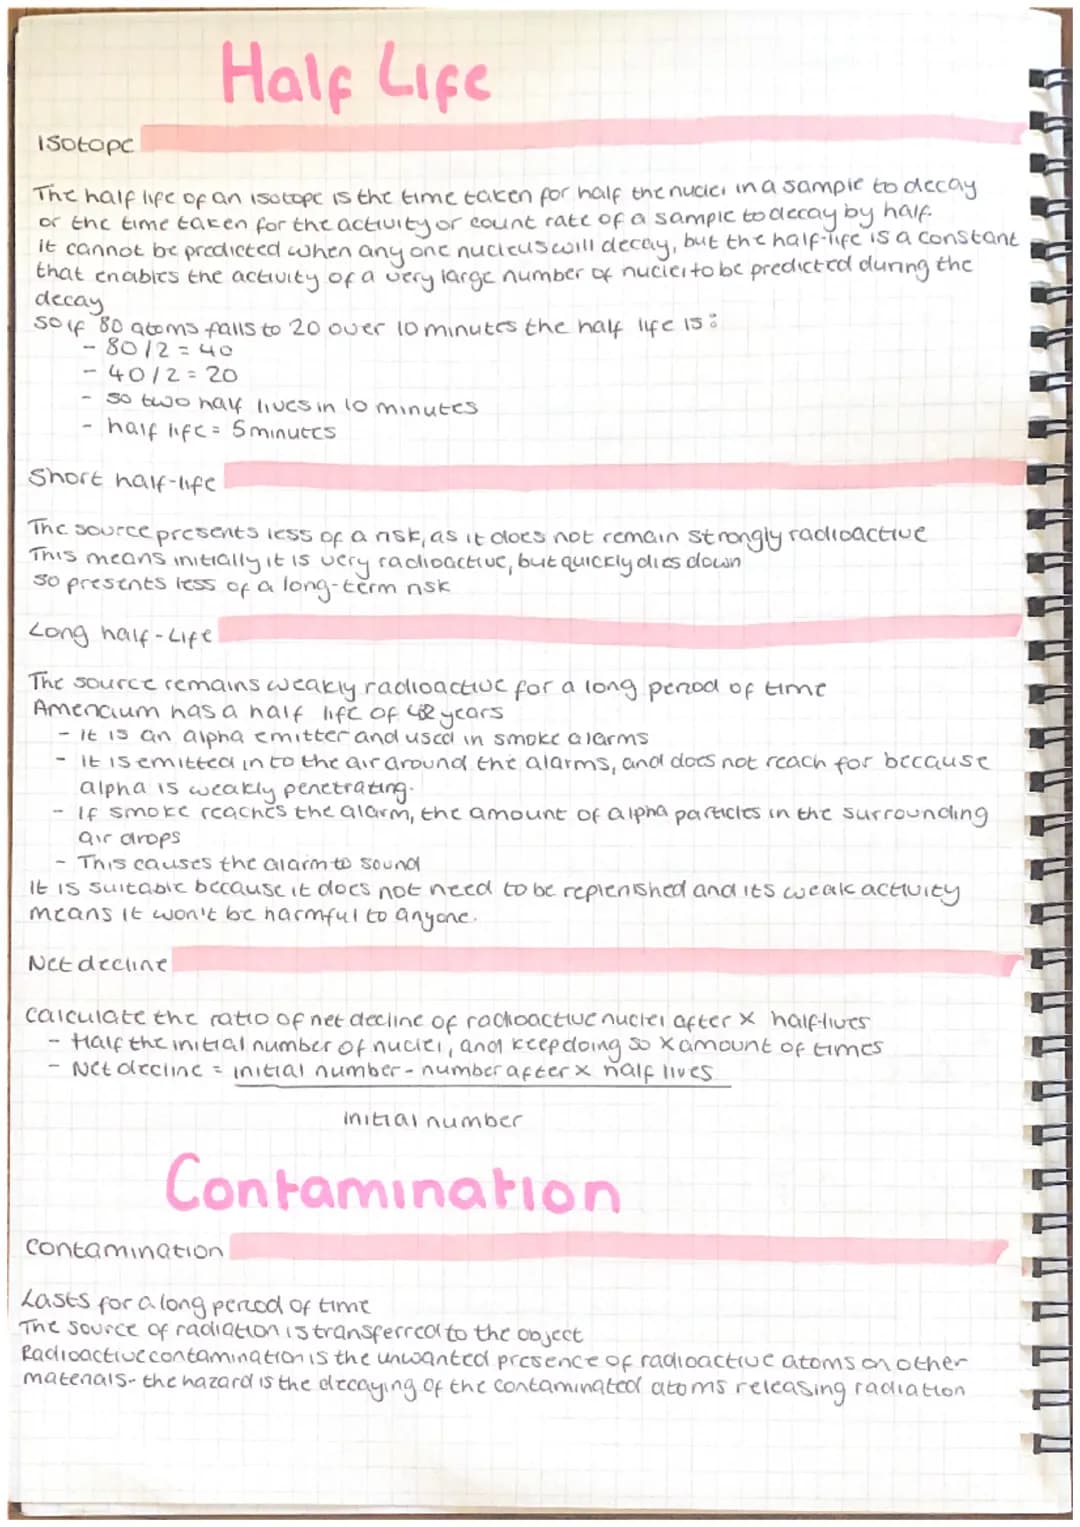 Half Life
Isotope
The half life of an isotope is the time taken for half the nuclei in a sample to decay
or the time taken for the activity or count rate of a sample to decay by half.
it cannot be predicted when any one nucleus will decay, but the half-life is a constant
that enables the activity of a very large number of nuclei to be predicted during the
decay
So if 80 atoms falls to 20 over 10 minutes the half life is:
- 80/2 = 40
- 40/2 = 20
- so two half lives in 10 minutes
- half life = 5 minutes
Short half-life
The source presents less of a risk, as it does not remain strongly radioactive
This means initially it is very radioactive, but quickly dies down
so presents less of a long-term risk
Long half-Life
The source remains weakly radioactive for a long period of time
Americium has a half life of years
- it is an alpha emitter and used in smoke alarms
- It is emitted in to the air around the alarms, and does not reach for because
alpha is weakly penetrating.
- If smoke reaches the alarm, the amount of alpha particles in the surrounding
air drops
- This causes the alarm to sound
It is suitable because it does not need to be replenished and its weak activity
means it won't be harmful to anyone.
Net decline
Calculate the ratio of net decline of radioactive nuclei after x half-lives
- Half the initial number of nuclei, and keep doing so x amount of times
- Net decline = initial number - number after x half lives
initial number
Contamination
Contamination
Lasts for a long period of time
The source of radiation is transferred to the object
Radioactive contamination is the unwanted presence of radioactive atoms on other
materials - the hazard is the decaying of the contaminated atoms releasing radiation